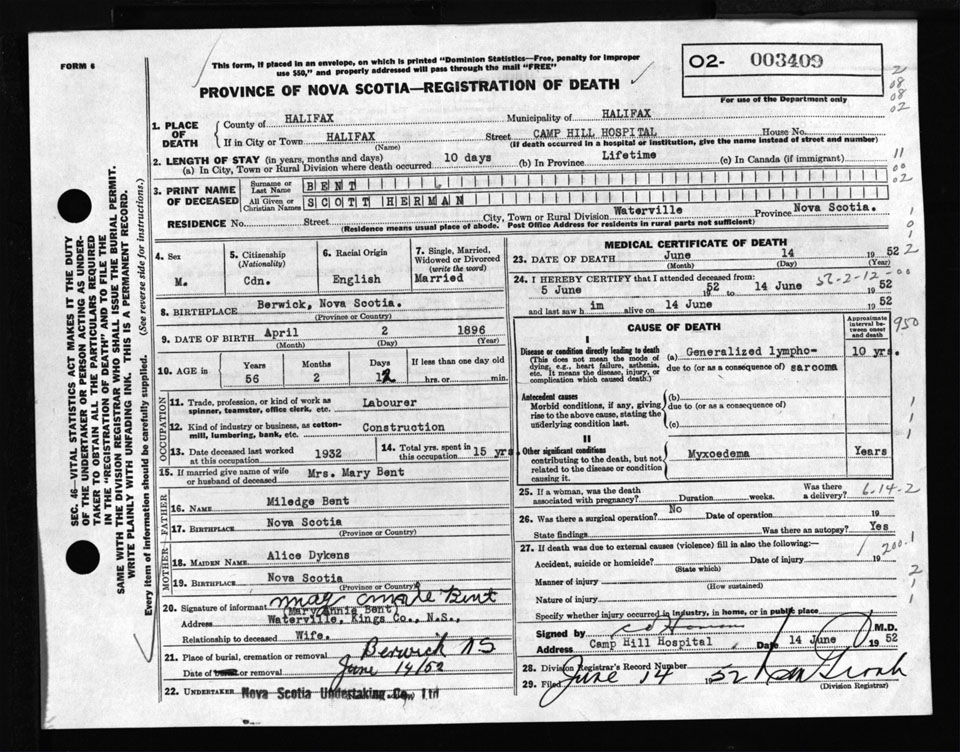 FORM 6
This form, if placed in an envelope, on which is printed "Dominion Statistics—Free, penalty for improper
use $50," and properly addressed will pass through the mail "FREE"
PROVINCE OF NOVA SCOTIA—REGISTRATION OF DEATH
O2- 003409
For use of the Department only
2
08
08
02
1. PLACE OF DEATH
County of HALIFAX Municipality of HALIFAX
If in City or Town HALIFAX Street CAMP HILL HOSPITAL House No.
(Name) (If death occurred in a hospital or institution, give the name instead of street and number)
2. LENGTH OF STAY (in years, months and days)
(a) In City, Town or Rural Division where death occurred 10 days (b) In Province Lifetime (c) In Canada (if immigrant)
11
00
02
3. PRINT NAME OF DECEASED
Surname or Last Name BENT
All Given or Christian Names SCOTT HERMAN
RESIDENCE No. Street City, Town or Rural Division Waterville Province Nova Scotia.
(Residence means usual place of abode. Post Office Address for residents in rural parts not sufficient)
SEC. 46—VITAL STATISTICS ACT MAKES IT THE DUTY
OF THE UNDERTAKER OR PERSON ACTING AS UNDER-
TAKER TO OBTAIN ALL THE PARTICULARS REQUIRED
IN THE "REGISTRATION OF DEATH" AND TO FILE THE
SAME WITH THE DIVISION REGISTRAR WHO SHALL ISSUE THE BURIAL PERMIT.
WRITE PLAINLY WITH UNFADING INK. THIS IS A PERMANENT RECORD.
Every item of information should be carefully supplied. (See reverse side for instructions.)
4. Sex
M.
5. Citizenship
(Nationality)
Cdn.
6. Racial Origin
English
7. Single, Married,
Widowed or Divorced
(write the word)
Married
8. BIRTHPLACE Berwick, Nova Scotia.
(Province or Country)
9. DATE OF BIRTH April 2 1896
(Month) (Day) (Year)
10. AGE in Years Months Days If less than one day old
56 2 12 hrs. or min.
OCCUPATION
11. Trade, profession, or kind of work as
spinner, teamster, office clerk, etc. Labourer
12. Kind of industry or business, as cotton-
mill, lumbering, bank, etc. Construction
13. Date deceased last worked
at this occupation 1932
14. Total yrs. spent in
this occupation 15 yrs.
15. If married give name of wife
or husband of deceased Mrs. Mary Bent
FATHER
16. Name Miledge Bent
17. Birthplace Nova Scotia
(Province or Country)
MOTHER
18. MAIDEN NAME Alice Dykens
19. BIRTHPLACE Nova Scotia
(Province or Country)
20. Signature of informant
(Mary Annie Bent)
Address Waterville, Kings Co., N.S.,
Relationship to deceased Wife.
21. Place of burial, cremation or removal Berwick NS
Date of burial or removal June 14/52
22. UNDERTAKER Nova Scotia Undertaking Co., Ltd
MEDICAL CERTIFICATE OF DEATH
23. DATE OF DEATH June 14 52
(Month) (Day) (Year)
24. I HEREBY CERTIFY that I attended deceased from:
5 June 1952 to 14 June 1952
and last saw h im alive on 14 June 1952
CAUSE OF DEATH
Approximate
interval be-
tween onset
and death
I
Disease or condition directly leading to death
(This does not mean the mode of
dying, e.g., heart failure, asthenia,
etc. It means the disease, injury, or
complication which caused death.)
(a) Generalized lympho- 10 yrs.
due to (or as a consequence of) sarcoma
Antecedent causes
Morbid conditions, if any, giving
rise to the above cause, stating the
underlying condition last.
(b)
due to (or as a consequence of)
(c)
II
Other significant conditions
contributing to the death, but not
related to the disease or condition
causing it.
Myxoedema Years
950
25. If a woman, was the death
associated with pregnancy? Duration weeks. Was there
a delivery?
6-14-2
26. Was there a surgical operation? No Date of operation 19
State findings Was there an autopsy? Yes
27. If death was due to external causes (violence) fill in also the following:—
Accident, suicide or homicide? Date of injury 19
(State which)
200.1
Manner of injury
(How sustained)
Nature of injury
Specify whether injury occurred in industry, in home, or in public place
Signed by M.D.
Address Camp Hill Hospital Date 14 June 1952
28. Division Registrar's Record Number
29. Filed June 14 1952
(Division Registrar)